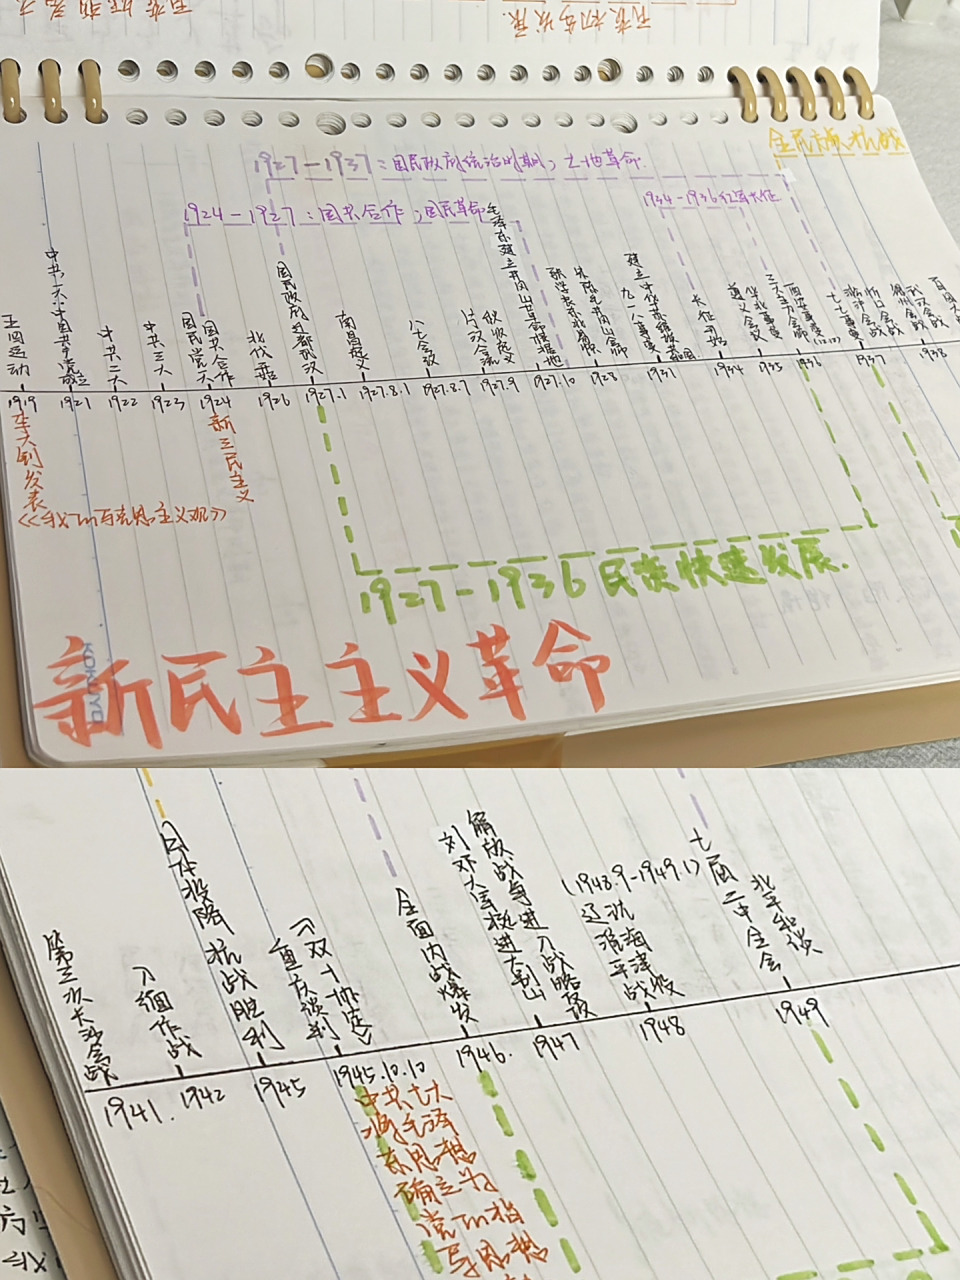 全民族抗战
1927-1937:国民政府统治时期,土地革命.
1924-1927:国共合作,国民革命
1934-1936红军长征
五四运动
中共一大:中国共产党成立
中共二大
中共三大
国民党一大
国共合作
北伐开始
国民政府迁都武汉
南昌起义
八七会议
秋收起义
毛泽东建立井冈山革命根据地
九一八事变
长征开始
遵义会议
华北事变
西安事变
七七事变
1919
1921
1922
1923
1924
1926
1927.1
1927.8.1
1927.8.7
1927.9
1927.10
1928
1931
1934
1935
1936
1937
1938
李大钊发表
《我们马克思主义观》
新三民主义
1927-1936民族快速发展.
新民主主义革命
KOKUYO
第三次长沙会战
入缅作战
日本投降
抗战胜利
重庆谈判
《双十协定》
全面内战爆发
刘邓大军挺进大别山
解放战争进入战略反
(1948.9-1949.1)
辽沈
淮海
平津
战役
七届二中全会
北平和谈
1941.
1942
1945
1945.10.10
1946.
1947
1948
1949
中共七大
将毛泽
东思想
确立为
党的指
导思想